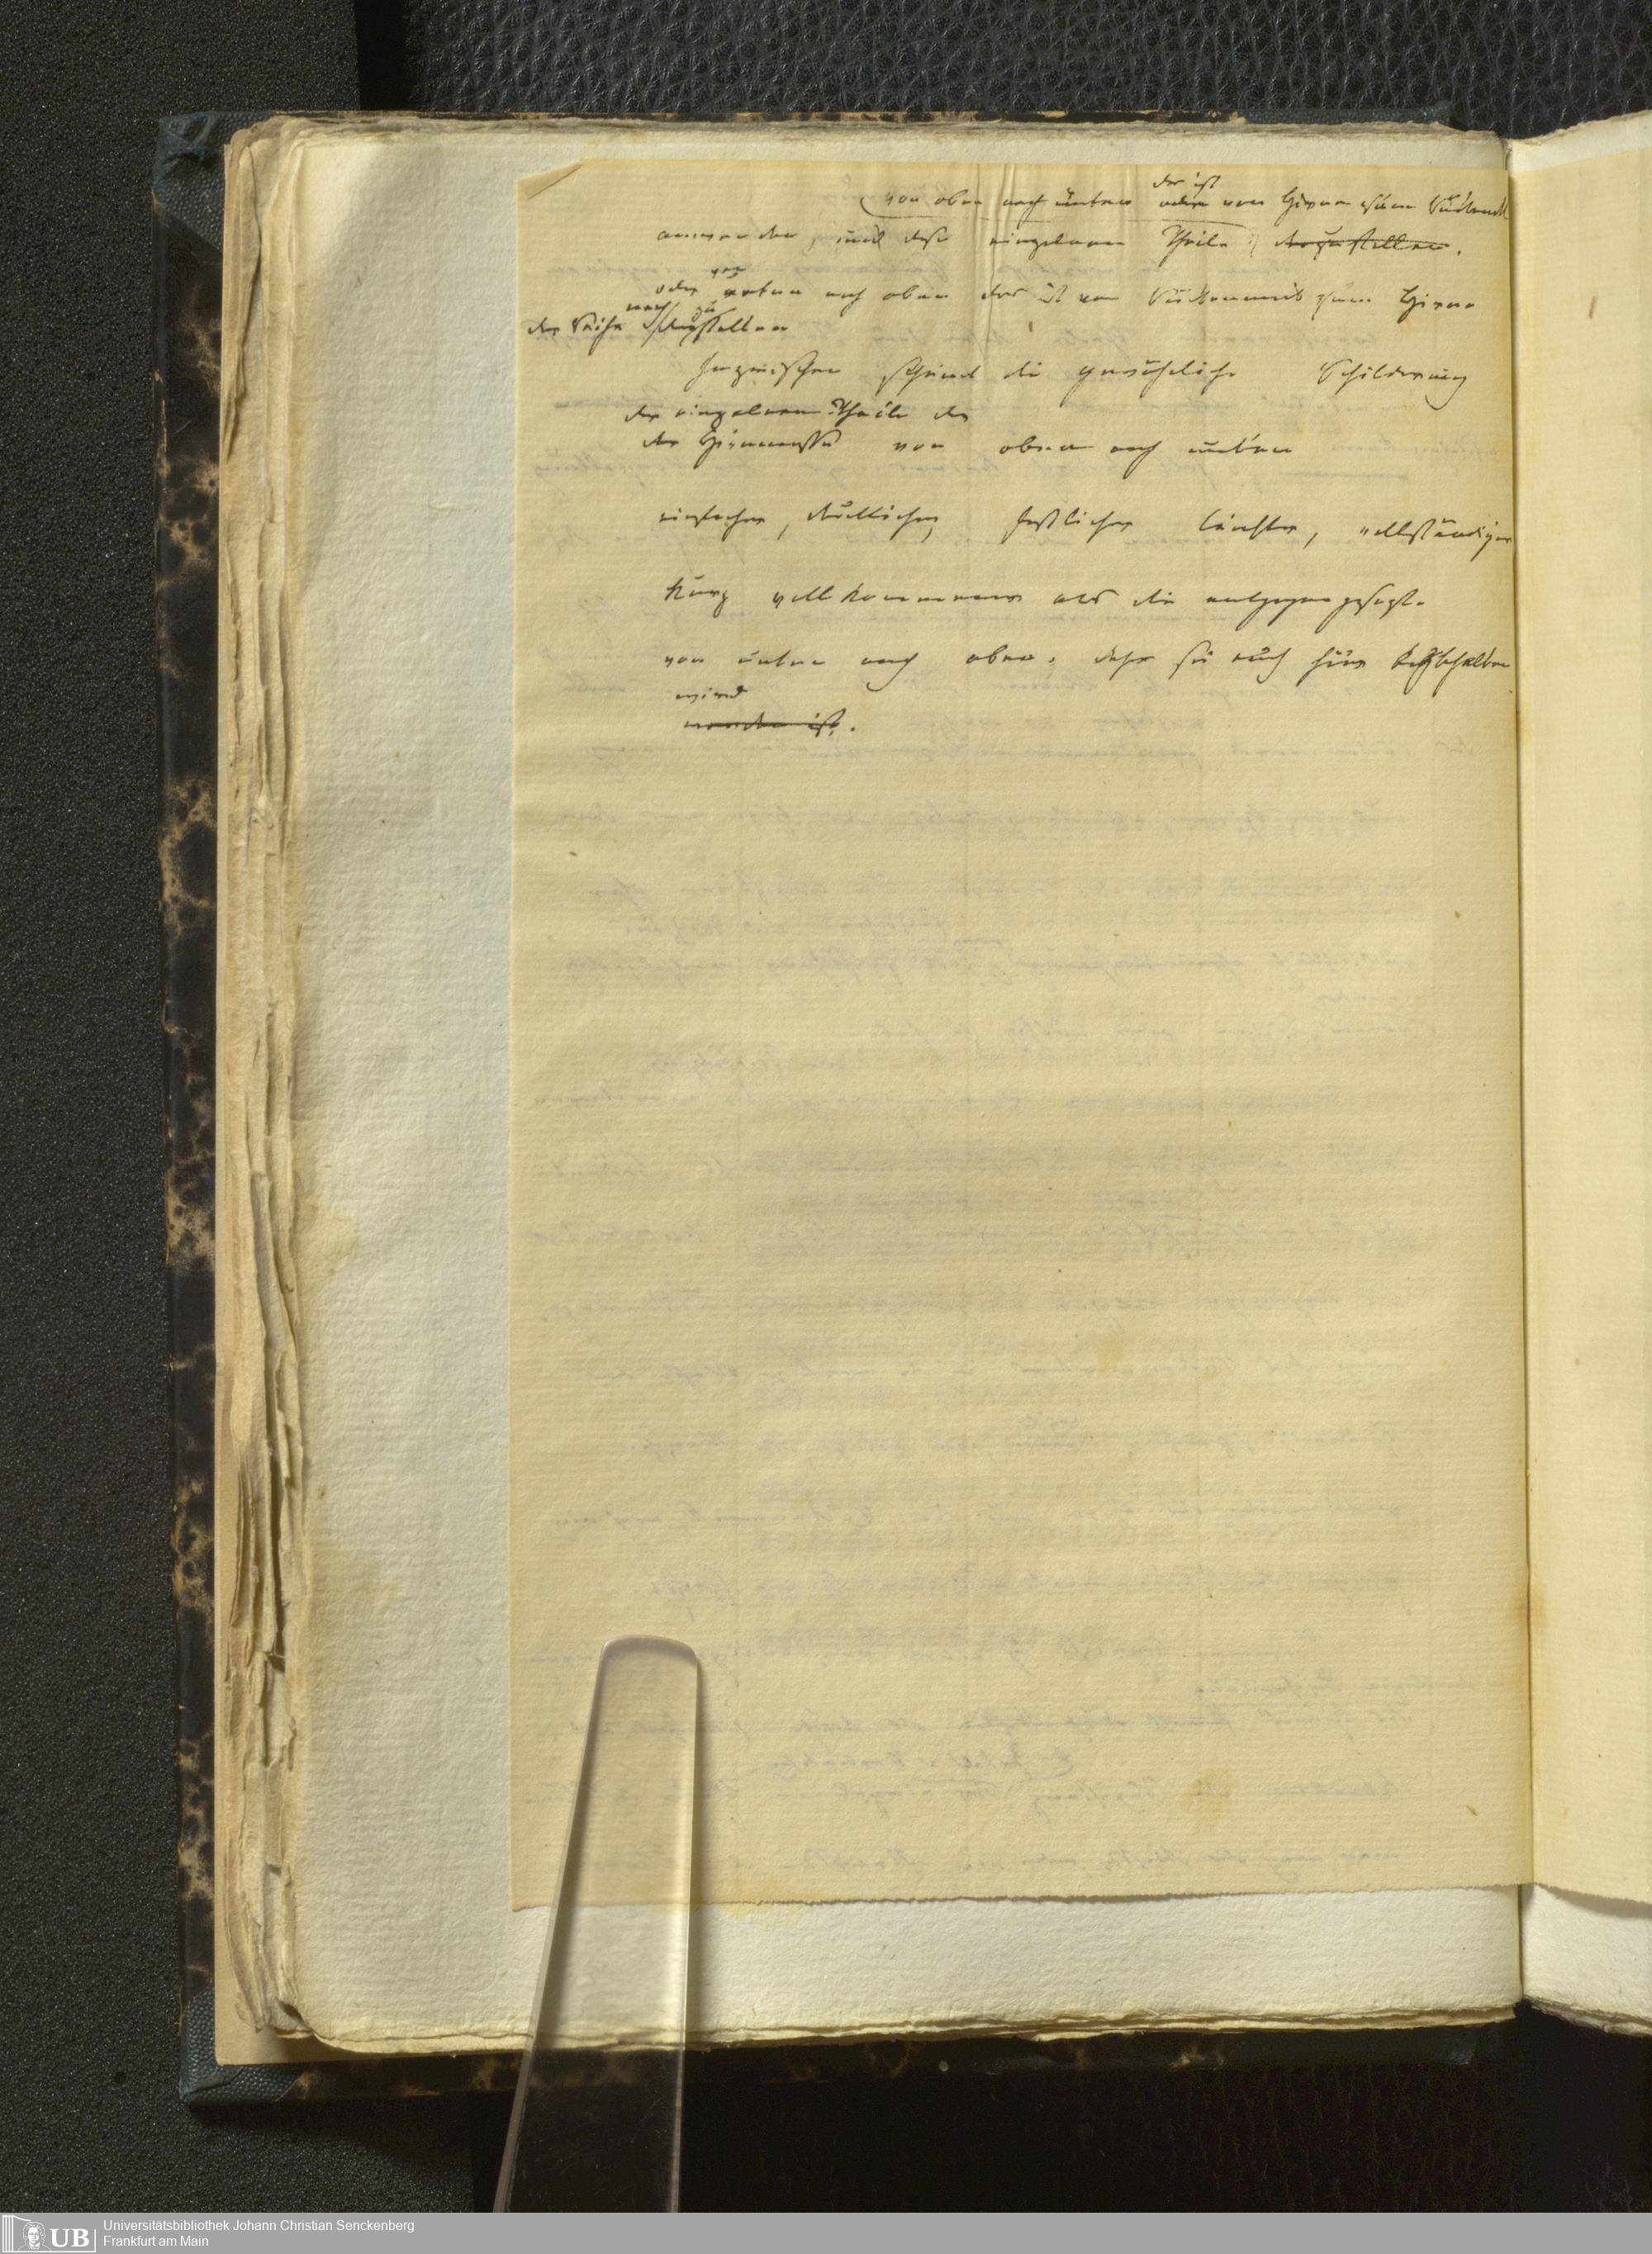 das ist
von oben nach unten oder vom Hirn zum Rückenmark
und diese einzelnen Theile darzustellen.
von
oder unten nach oben das ist vom Rückenmark zum Hirne
nach zu
der Reihe darstellen
Inzwischen scheint die gewöhnliche Schilderung
der einzelnen Theile der
der Hirnmasse von oben nach unten
einfacher, deutlicher, faßlicher leichter, vollständiger
kurz vollkommener als die entgegengesetzte
von unten nach oben, daher sie auch hier beybehalten
wird
worden ist.
UB
Universitätsbibliothek Johann Christian Senckenberg
Frankfurt am Main